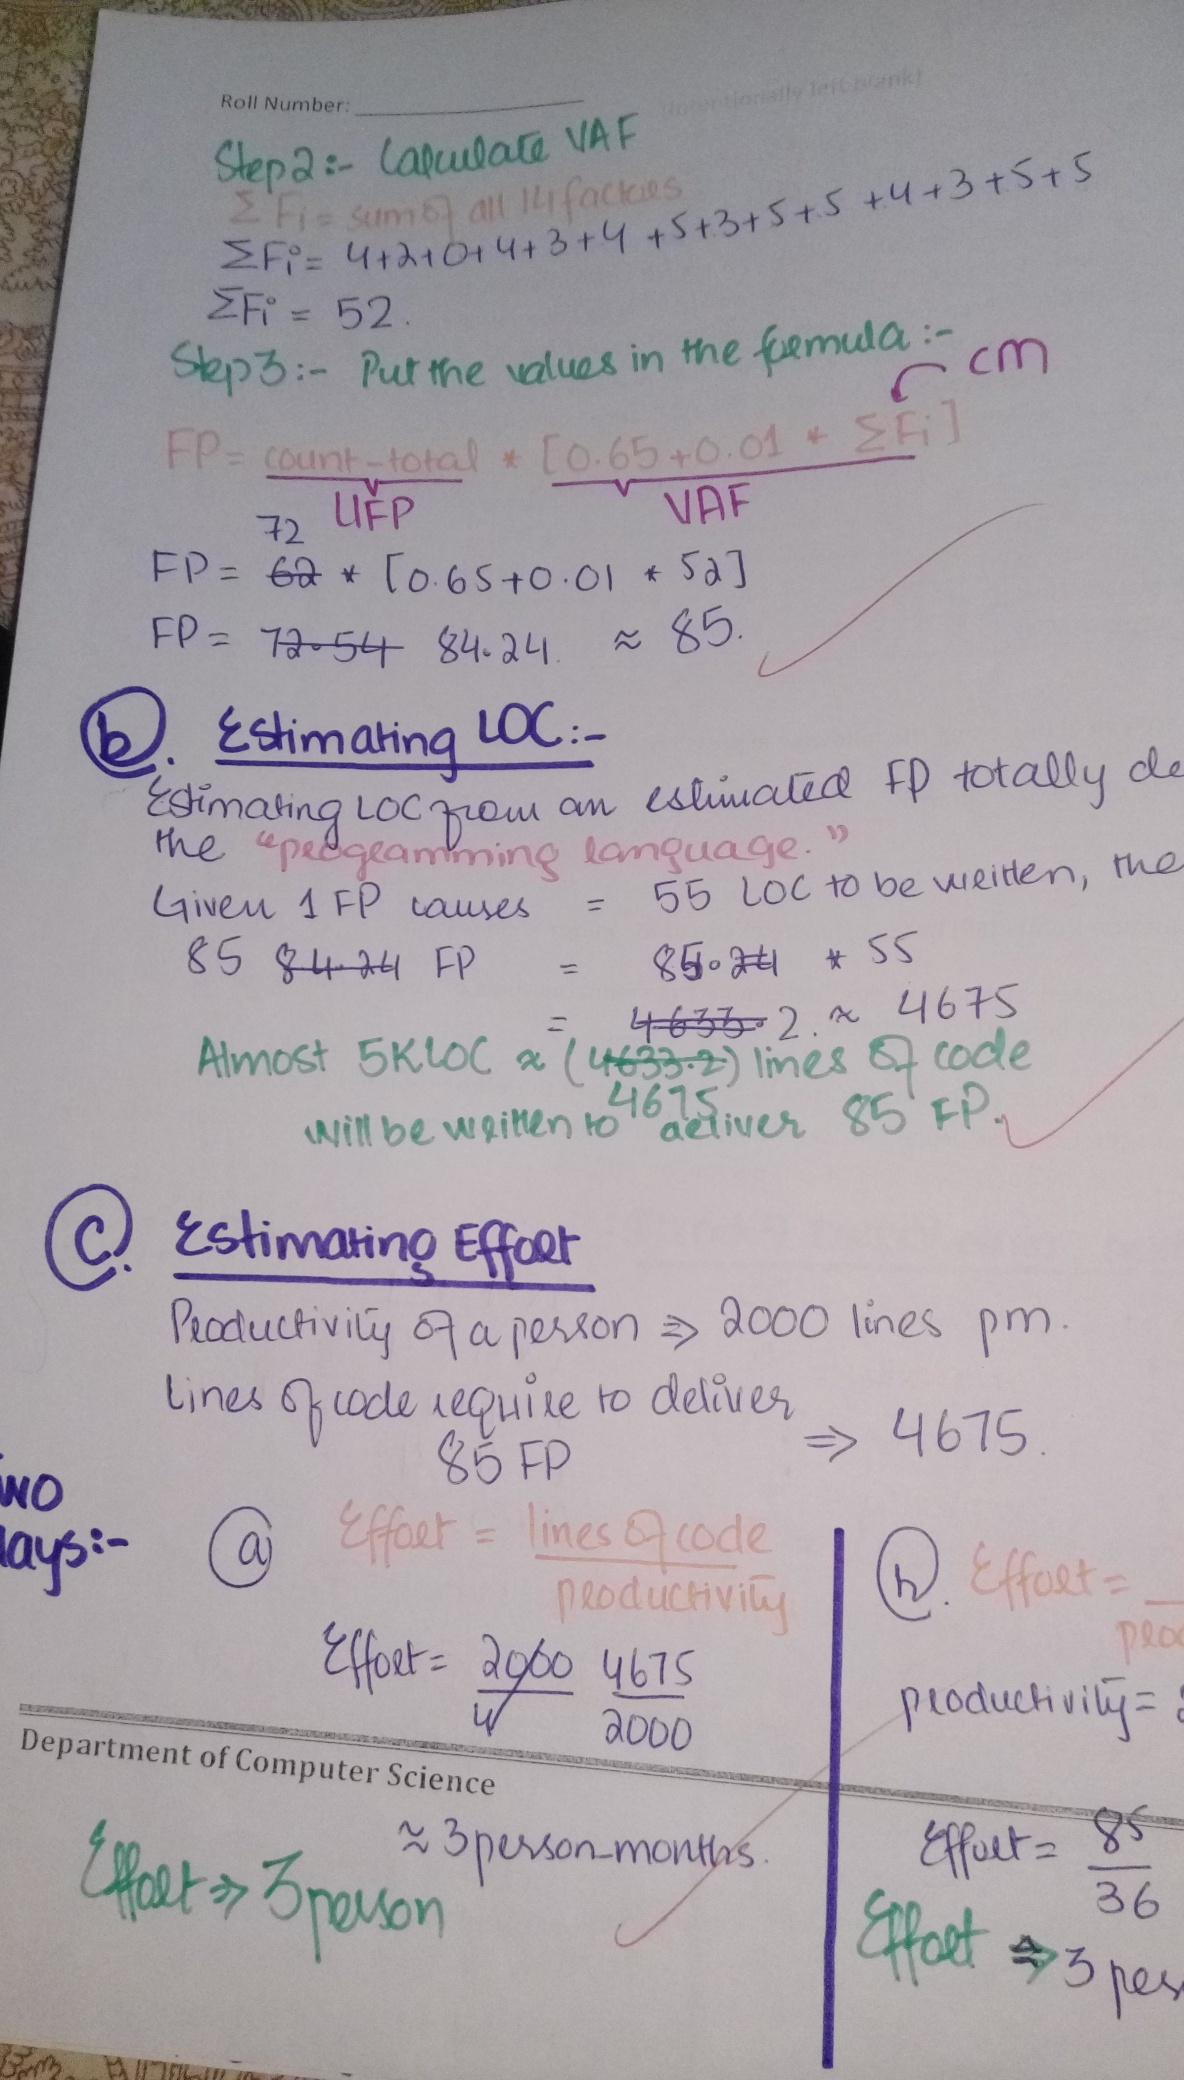 Roll Number:
(Intentionally left blank)
Step 2:- Calculate VAF
ΣFi = sum of all 14 factors
ΣFi = 4+2+0+4+3+4+5+3+5+5+4+3+5+5
ΣFi = 52.
Step 3:- Put the values in the formula:-
CM
FP = count-total * [0.65+0.01 * ΣFi]
UFP VAF
72
FP = 62 * [0.65+0.01 * 52]
FP = 72.54 84.24 ≈ 85.
b. Estimating LOC:-
Estimating LOC from an estimated FP totally de
the "programming language."
Given 1 FP causes = 55 LOC to be written, the
85 84.24 FP = 85.24 * 55
= 4633.2. ≈ 4675
Almost 5KLOC ≈ (4633.2) lines of code
4675
will be written to deliver 85 FP.
c. Estimating Effort
Productivity of a person ⇒ 2000 lines pm.
Lines of code require to deliver
85 FP ⇒ 4675.
wo
ays:-
a Effort = lines of code
productivity
Effort = 2000 4675
4 2000
Department of Computer Science
≈ 3 person-months.
Effort ⇒ 3 person
b. Effort =
proc
productivity =
Effort = 85
36
Effort ⇒ 3 pers